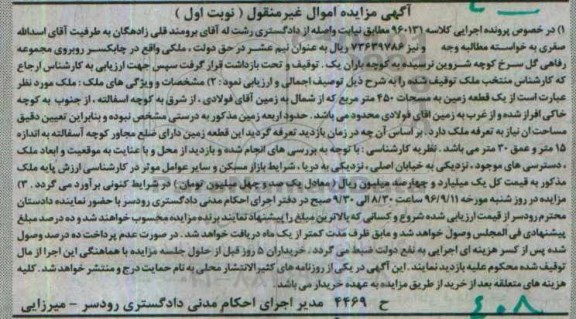 آگهی مزایده اموال غیرمنقول ( نوبت اول )
۱) در خصوص پرونده اجرایی کلاسه ۹۶۰۱۳۱ مطابق نیابت واصله از دادگستری رشت له آقای برومند قلی زادهگان به طرفیت آقای اسدالله
صفری به خواسته مطالبه وجه و نیز ۷۳۶۳۹۷۸۶ ریال به عنوان نیم عشر در حق دولت ، ملکی واقع در چابکسر روبروی مجموعه
رفاهی گل سرخ کوچه شروین نرسیده به کوچه باران یک . توقیف و تحت بازداشت قرار گرفت سپس جهت ارزیابی به کارشناس ارجاع
که کارشناس منتخب ملک توقیف شده را به شرح ذیل توصیف اجمالی و ارزیابی نمود : ۲) مشخصات و ویژگی های ملک : ملک مورد نظر
عبارت است از یک قطعه زمین به مساحت ۴۵۰ متر مربع که از شمال به زمین آقای فولادی ، از شرق به کوچه آسفالته ، از جنوب به کوچه
خاکی افراز شده و از غرب به زمین آقای فولادی محدود می باشد . حدود اربعه زمین مذکور به درستی مشخص نبوده و بنابراین تعیین دقیق
مساحت آن نیاز به تعرفه ملک دارد . بر اساس آن چه در زمان بازدید تعرفه گردید این قطعه زمین دارای ضلع مجاور کوچه آسفالته به اندازه
۱۵ متر و عمق ۳۰ متر می باشد . نظریه کارشناسی : با توجه به بررسی های انجام شده و بازدید از محل و با عنایت به موقعیت و ابعاد ملک
، دسترسی های موجود ، نزدیکی به خیابان اصلی ، نزدیکی به دریا ، شرایط بازار مسکن و سایر عوامل موثر در کارشناسی ارزش پایه ملک
مذکور به قیمت کل یک میلیارد و چهارصد میلیون ریال ( معادل یک صد و چهل میلیون تومان ) در شرایط کنونی برآورد می گردد . ۳)
مزایده در روز شنبه مورخه ۹۶/۹/۱۱ ساعت ۸/۳۰ الی ۹/۳۰ صبح در دفتر اجرای احکام مدنی دادگستری رودسر با حضور نماینده دادستان
محترم رودسر از قیمت ارزیابی شده شروع و کسانی که بالاترین مبلغ را پیشنهاد نمایند برنده مزایده محسوب خواهند شد و ده درصد مبلغ
پیشنهادی فی المجلس وصول خواهد شد و مابقی ظرف مدت کمتر از یک ماه دریافت خواهد شد . در صورت عدم پرداخت ده درصد وصول
شده پس از کسر هزینه ای اجرایی به نفع دولت ضبط می گردد . خریداران ۵ روز قبل از حلول جلسه مزایده با هماهنگی این اجرا از مال
توقیف شده محکوم علیه بازدید نمایند . این آگهی در یکی از روزنامه های کثیرالانتشار محلی به نام حمایت درج و منتشر خواهد شد . کلیه
هزینه های متعلقه بعد از خرید از طریق مزایده به عهده خریدار می باشد .
ح ۴۴۶۹ مدیر اجرای احکام مدنی دادگستری رودسر - میرزایی
۴۰۸